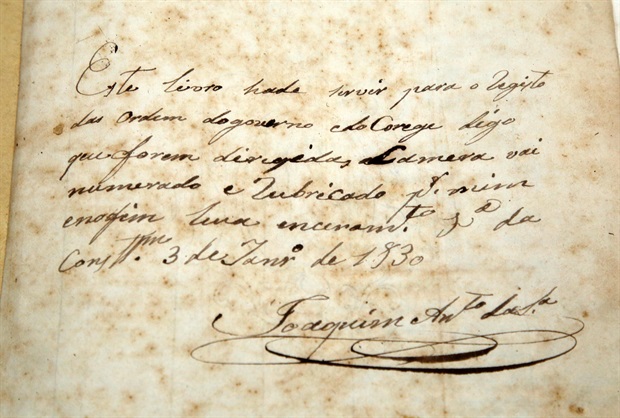 Este livro hade servir para o Registo
das Ordem do governo e do Corege digo
que forem dirigidas a Camera vai
numerado e Rubricado pr. mim
eno fim leva enceramto. Va da
Consttm. 3 de Janro de 1830
Joaquim Anto da Sa.